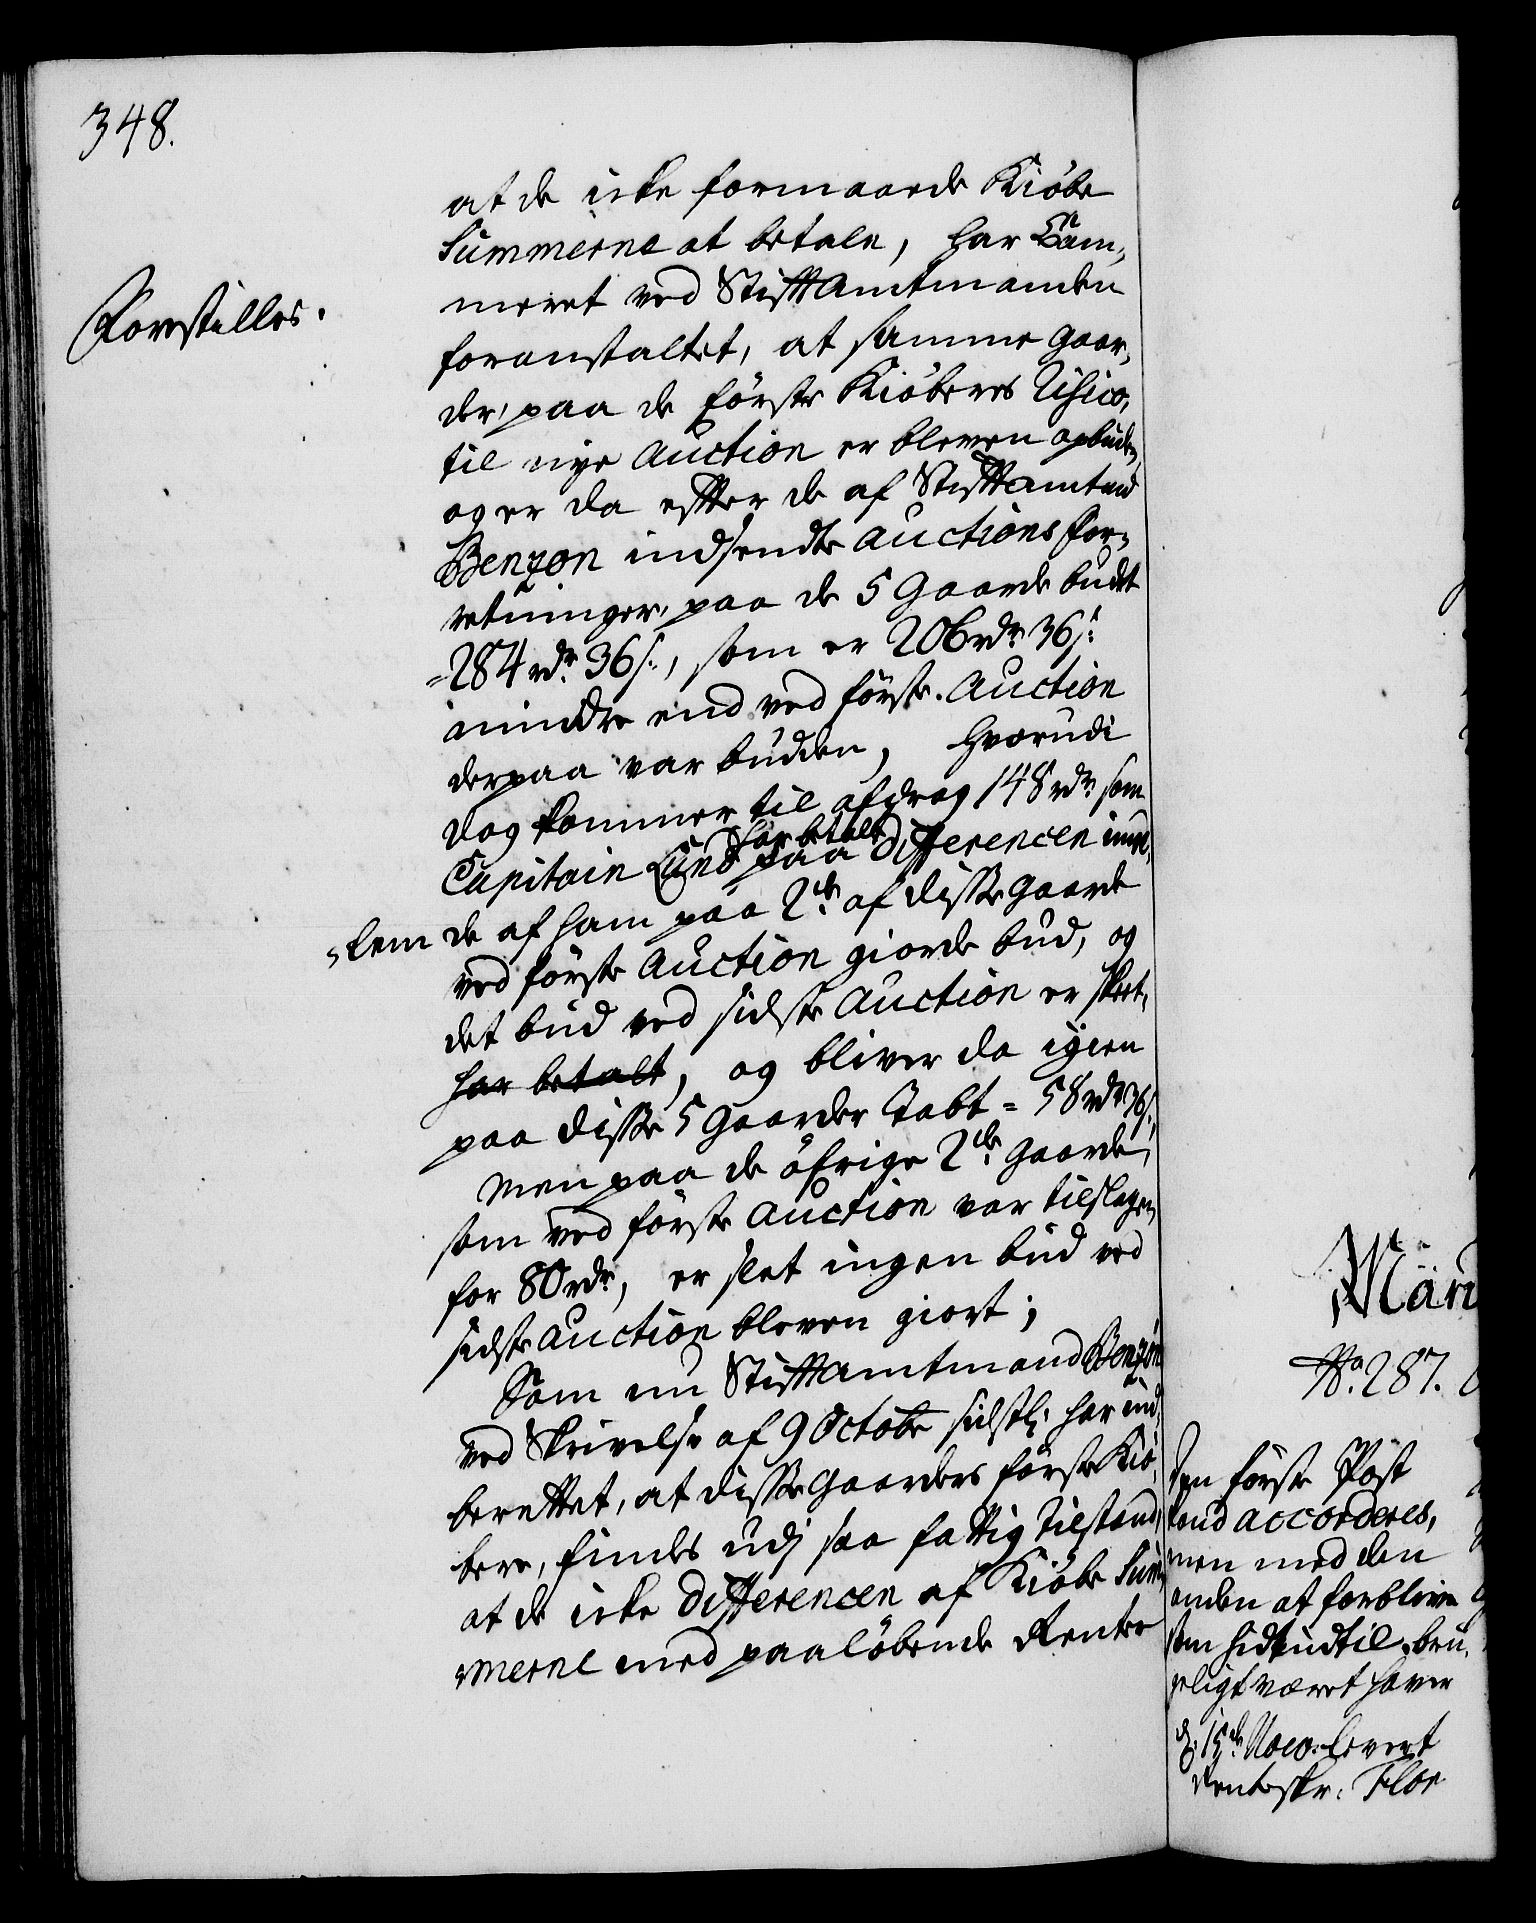 348.
Forestilles.
at de icke formaaede Kiöbe
Summerne at betale, har Cam„
meret ved Stiftamtmanden
foranstaltet, at samme Gaar„
der, paa de förste Kiöberes Risico,
til nye Auction er bleven opbuden,
og er da efter de af Stiftamtmd
Benzon indsendte Auctions for„
retninger, paa de 5 Gaarde budet
284 rdr. 36 s., som er 206 rdr. 36 s.
mindre end ved förste Auction
derpaa var buden, hvorudi
dog kommer til afdrag 148 rdr. som
har betalt
Capitain Lund paa differencen imel„
„lem de af ham paa 2de af disse Gaarde
ved förste Auction giorde bud, og
det bud ved sidste Auction er skeet,
har betalt, og bliver da igien
paa disse 5 Gaarder Tabt = 58 rdr 36 s.,
Men paa de öfrige 2de Gaarde,
som ved förste Auction var tilslagen
for 80 rdr, er slet ingen bud ved
sidste Auction bleven giort;
Som nu Stiftamtmand Benzon
ved Skrivelse af 9 Octobr sidstl: har ind„
berettet, at disse Gaarders förste Kiö„
bere, findes udj saa fattig Tilstand,
at de icke differencen af Kiöbe Sum„
merne med paalöbende Renter
No. 287.
Den förste Post
kand accorderes,
men med den
anden at forblive
som hidindtil bru„
geligt været haver
d. 15de Nov. levert
Renteskr: Flor